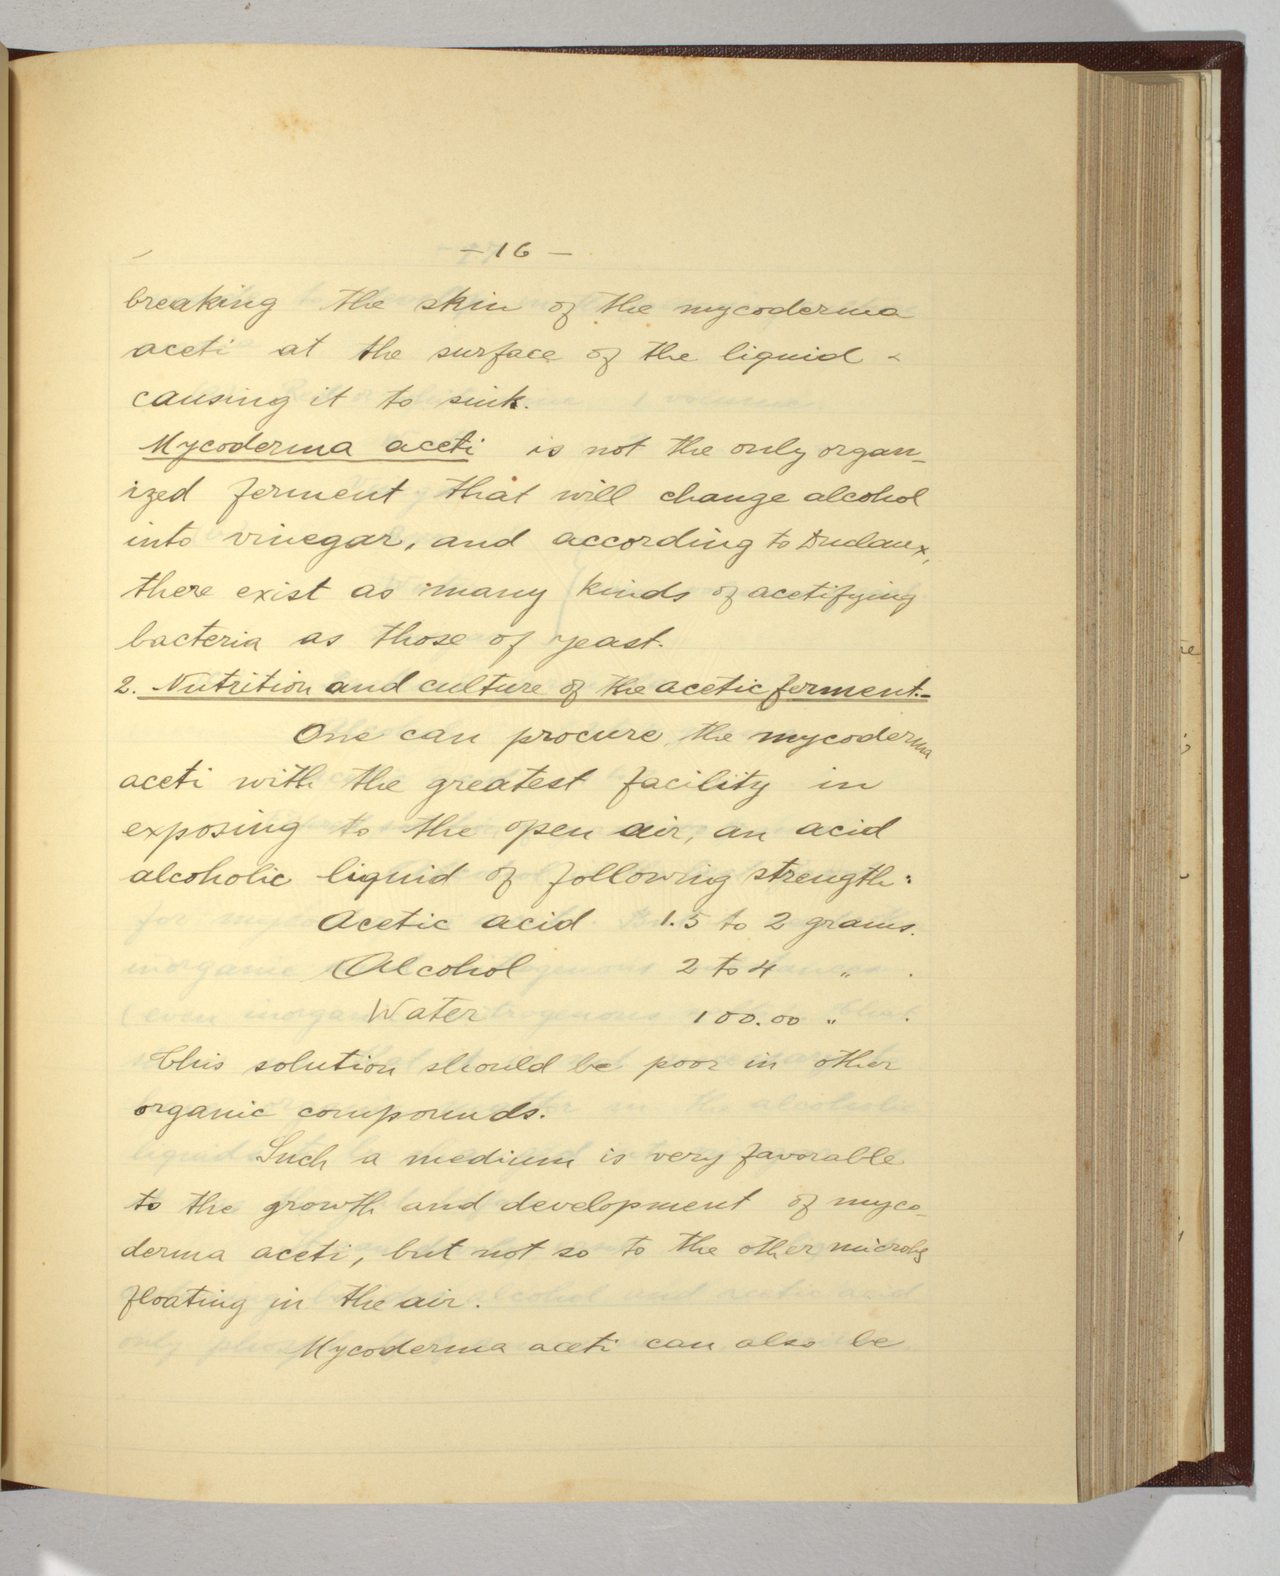 - 16 -
breaking the skin of the mycoderma
aceti at the surface of the liquid &
causing it to sink.
Mycoderma aceti is not the only organ-
ized ferment that will change alcohol
into vinegar, and according to Duclaux,
there exist as many kinds of acetifying
bacteria as those of yeast.
2. Nutrition and culture of the acetic ferment.-
One can procure the mycoderma
aceti with the greatest facility in
exposing to the open air, an acid
alcoholic liquid of following strength:
Acetic acid 1.5 to 2 grams.
Alcohol 2 to 4 " .
Water 100.00 " .
This solution should be poor in other
organic compounds.
Such a medium is very favorable
to the growth and development of myco-
derma aceti, but not so to the other microbs
floating in the air.
Mycoderma aceti can also be